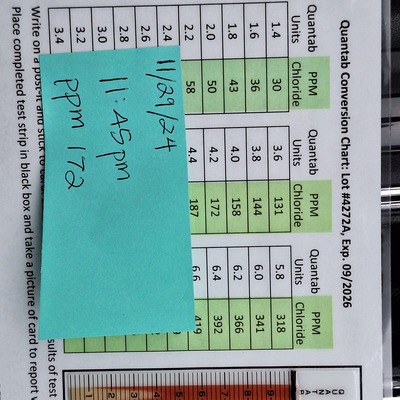 Quantab Conversion Chart: Lot #4272A, Exp. 09/2026
Quantab Units PPM Chloride Quantab Units PPM Chloride Quantab Units PPM Chloride
1.4 30 3.6 131 5.8 318
1.6 36 3.8 144 6.0 341
1.8 43 4.0 158 6.2 366
2.0 50 4.2 172 6.4 392
2.2 58 4.4 187 6.6 419
2.4
2.6
2.8
3.0
3.2
3.4
11/29/24
11:45pm
ppm 172
Write on a post-it and stick to
Place completed test strip in black box and take a picture of card to report
sults of test
QUANTAB
1 2 3 4 5 6 7 8 9